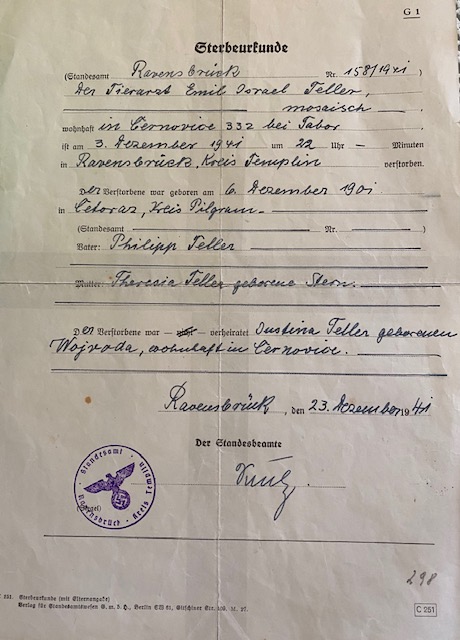 G 1
Sterbeurkunde
(Standesamt Ravensbrück Nr. 158/1941)
Der Tierarzt Emil Israel Teller,
mosaisch
wohnhaft in Černovice 332 bei Tabor
ist am 3. Dezember 1941 um 22 Uhr — Minuten
in Ravensbrück, Kreis Templin verstorben.
Der Verstorbene war geboren am 6. Dezember 1901
in Cetoraz, Kreis Pilgram
(Standesamt Nr. )
Vater: Philipp Teller
Mutter: Theresia Teller geborene Stern.
Der Verstorbene war — nicht — verheiratet Justina Teller geborenen
Wojvoda, wohnhaft in Černovice.
Ravensbrück, den 23. Dezember 1941
Der Standesbeamte
Standesamt
(Siegel)
Ravensbrück Kreis Templin
298
C 251. Sterbeurkunde (mit Elternangabe)
Verlag für Standesamtswesen G. m. b. H., Berlin SW 61, Gitschiner Str. 109.
C 251